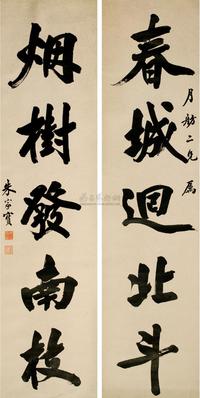 春城迴北斗
月舫二兄屬
烟樹發南枝
朱家寶